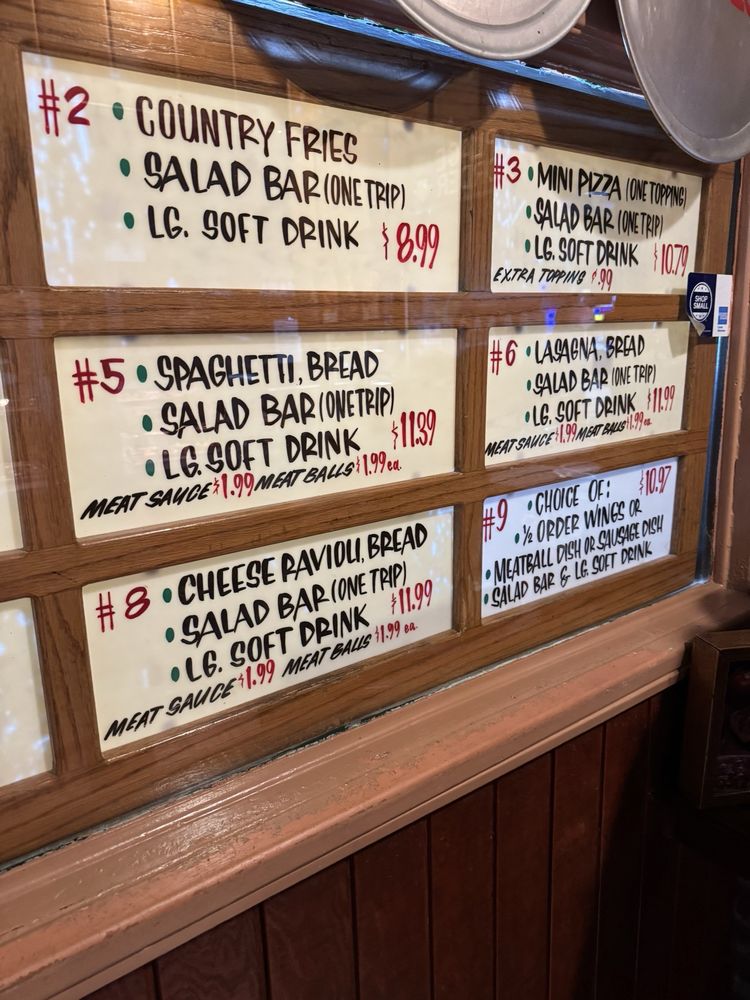 #2 • COUNTRY FRIES
• SALAD BAR (ONE TRIP)
• LG. SOFT DRINK $8.99
#3 • MINI PIZZA (ONE TOPPING)
• SALAD BAR (ONE TRIP)
• LG. SOFT DRINK $10.79
EXTRA TOPPING $.99
SHOP
SMALL
#5 • SPAGHETTI, BREAD
• SALAD BAR (ONE TRIP)
• LG. SOFT DRINK $11.39
MEAT SAUCE $1.99 MEAT BALLS $1.99 ea.
#6 • LASAGNA, BREAD
• SALAD BAR (ONE TRIP)
• LG. SOFT DRINK $11.99
MEAT SAUCE $1.99 MEAT BALLS $1.99 ea.
#8 • CHEESE RAVIOLI, BREAD
• SALAD BAR (ONE TRIP)
• LG. SOFT DRINK $11.99
MEAT SAUCE $1.99 MEAT BALLS $1.99 ea.
#9 • CHOICE OF: $10.97
• ½ ORDER WINGS OR
• MEATBALL DISH OR SAUSAGE DISH
• SALAD BAR & LG. SOFT DRINK